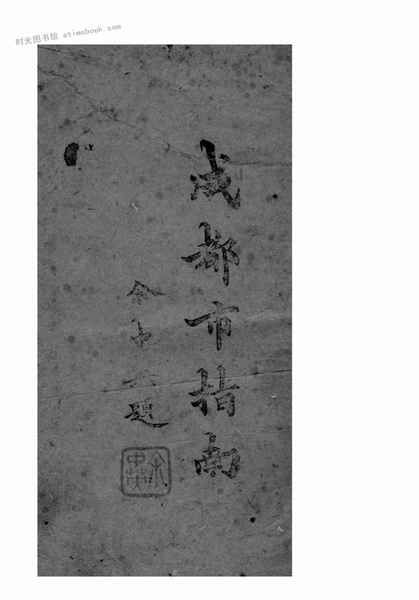 时光图书馆 atimebook.com
成都市指南
余中英題
余中英